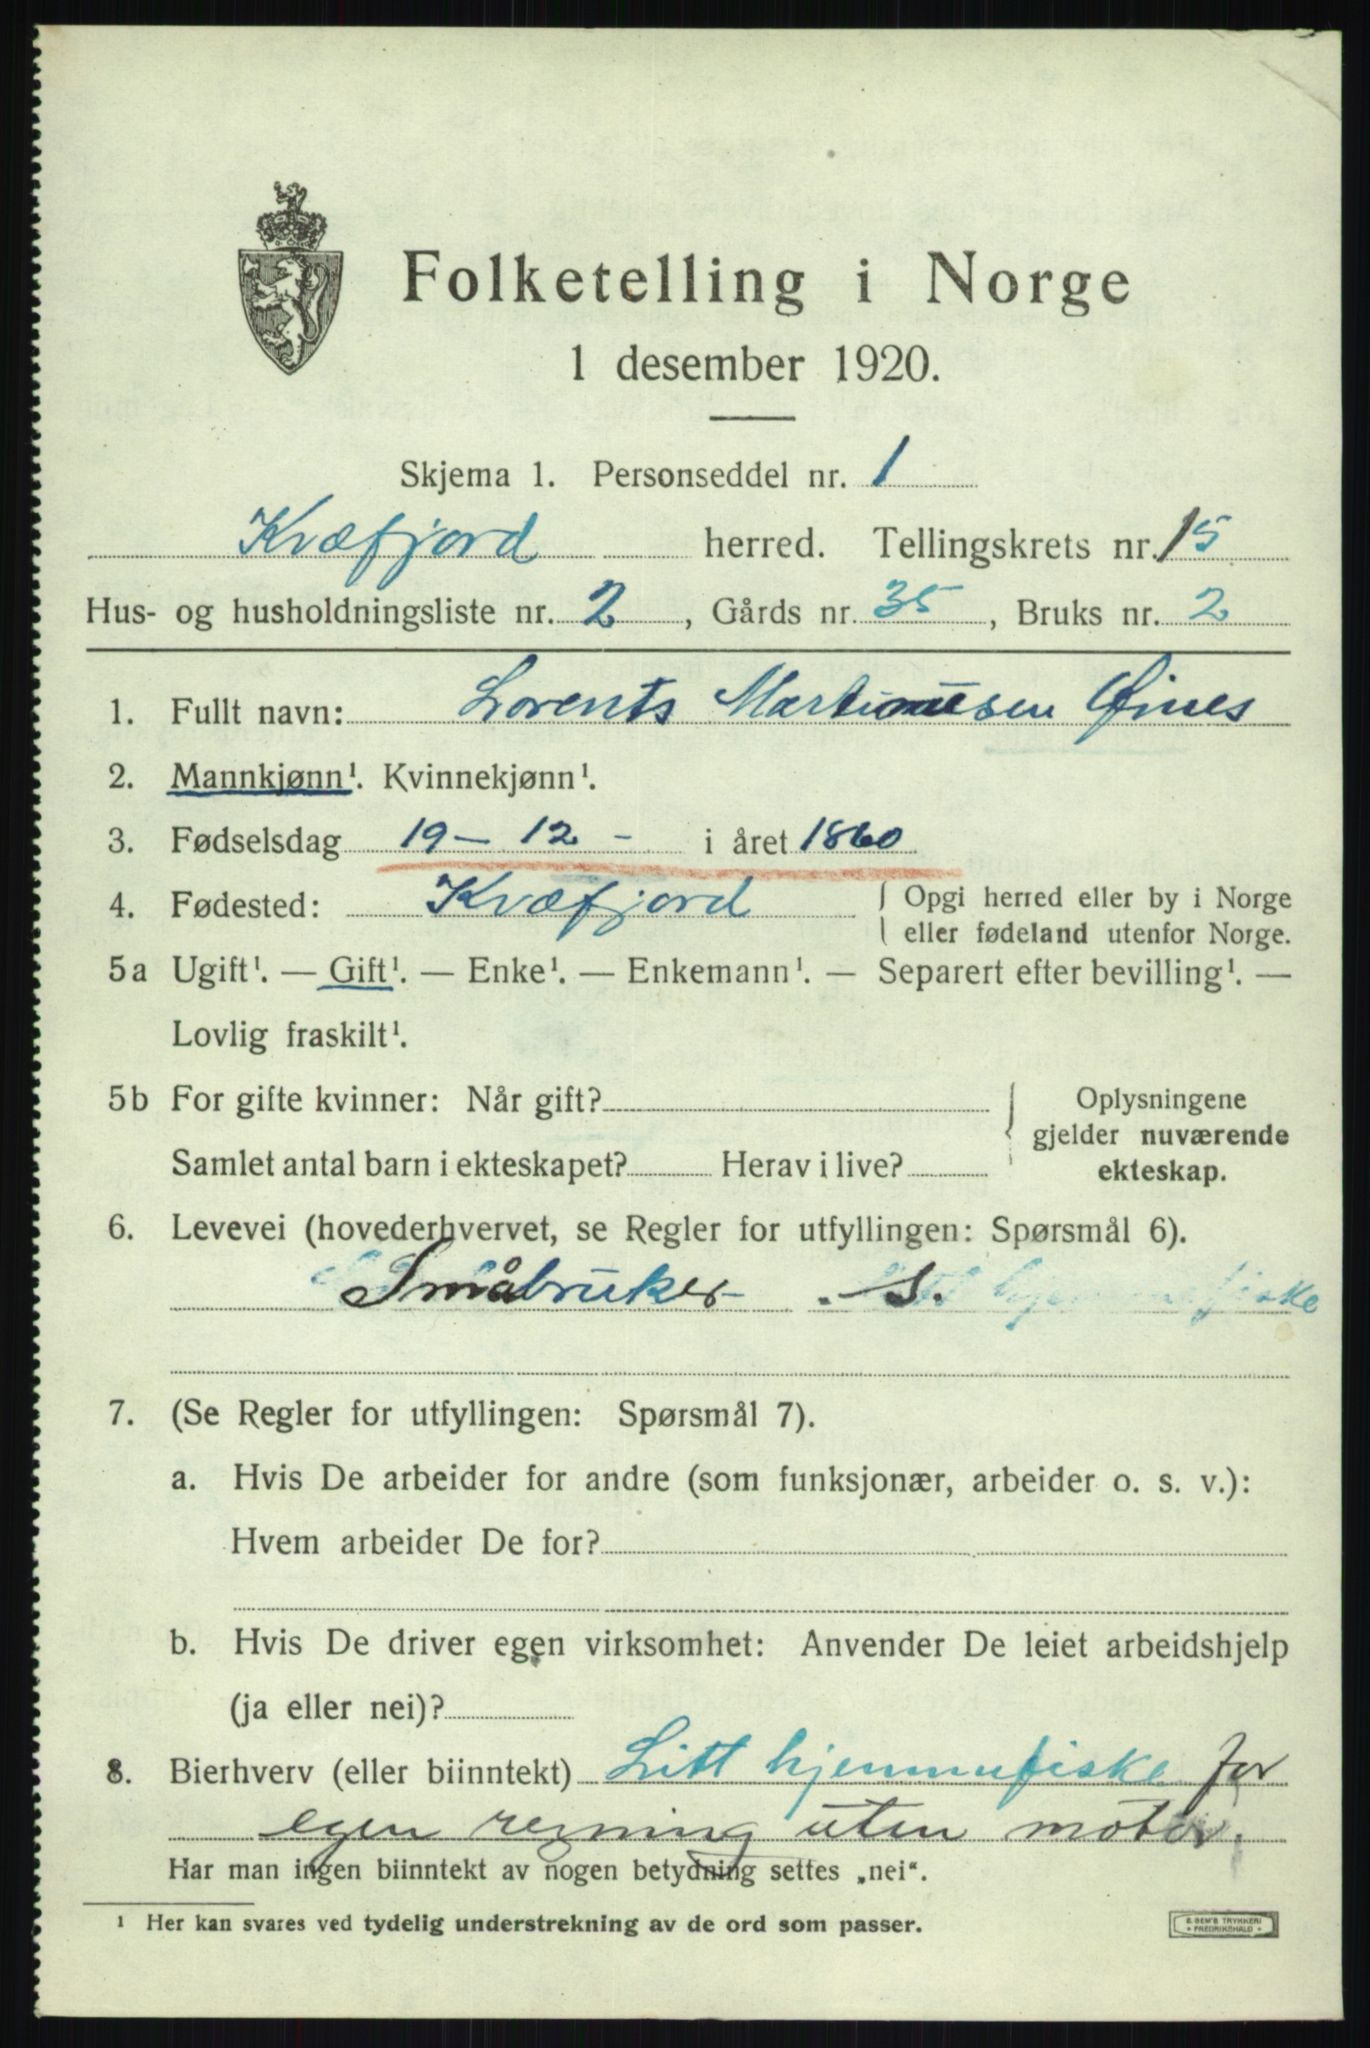 Folketelling i Norge
1 desember 1920.
Skjema 1. Personseddel nr. 1
Kvæfjord herred. Tellingskrets nr. 15
Hus- og husholdningsliste nr. 2, Gårds nr. 35, Bruks nr. 2
1. Fullt navn: Lorents Martinusen Øines
2. Mannkjønn¹. Kvinnekjønn¹.
3. Fødselsdag 19 – 12 – i året 1860
4. Fødested: Kvæfjord { Opgi herred eller by i Norge
eller fødeland utenfor Norge.
5a Ugift¹. — Gift¹. — Enke¹. — Enkemann¹. — Separert efter bevilling¹. —
Lovlig fraskilt¹.
5b For gifte kvinner: Når gift? { Oplysningene
gjelder nuværende
Samlet antal barn i ekteskapet? Herav i live? ekteskap.
6. Levevei (hovederhvervet, se Regler for utfyllingen: Spørsmål 6).
Småbruker . S. hjemmefiske
7. (Se Regler for utfyllingen: Spørsmål 7).
a. Hvis De arbeider for andre (som funksjonær, arbeider o. s. v.):
Hvem arbeider De for?
b. Hvis De driver egen virksomhet: Anvender De leiet arbeidshjelp
(ja eller nei)?
8. Bierhverv (eller biinntekt) Litt hjemmefiske for
egen regning uten motor.
Har man ingen biinntekt av nogen betydning settes „nei“.
¹ Her kan svares ved tydelig understrekning av de ord som passer.
E. SEM'S TRYKKERI
FREDRIKSHALD